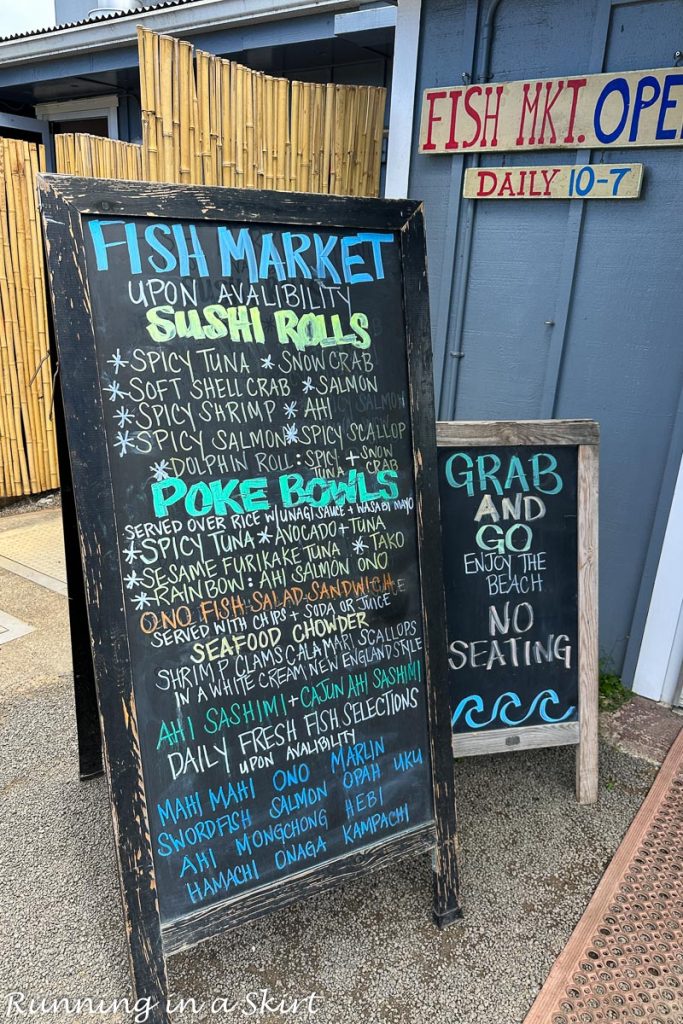 FISH MKT. OPE
DAILY 10-7
FISH MARKET
UPON AVALIBILITY
SUSHI ROLLS
* SPICY TUNA * SNOW CRAB
* SOFT SHELL CRAB * SALMON
* SPICY SHRIMP * AHI
* SPICY SALMON * SPICY SCALLOP
* DOLPHIN ROLL: SPICY TUNA + SNOW CRAB
POKE BOWLS
SERVED OVER RICE W/ UNAGI SAUCE + WASABI MAYO
* SPICY TUNA * AVOCADO + TUNA
* SESAME FURIKAKE TUNA * TAKO
* RAINBOW: AHI SALMON ONO
ONO FISH SALAD SANDWICH
SERVED WITH CHIPS + SODA OR JUICE
SEAFOOD CHOWDER
SHRIMP CLAMS CALAMARI SCALLOPS
IN A WHITE CREAM NEW ENGLAND STYLE
AHI SASHIMI + CAJUN AHI SASHIMI
DAILY FRESH FISH SELECTIONS
UPON AVALIBILITY
MAHI MAHI ONO MARLIN
SWORDFISH SALMON OPAH UKU
AHI MONGCHONG HEBI
HAMACHI ONAGA KAMPACHI
GRAB
AND
GO
ENJOY THE
BEACH
NO
SEATING
Running in a Skirt